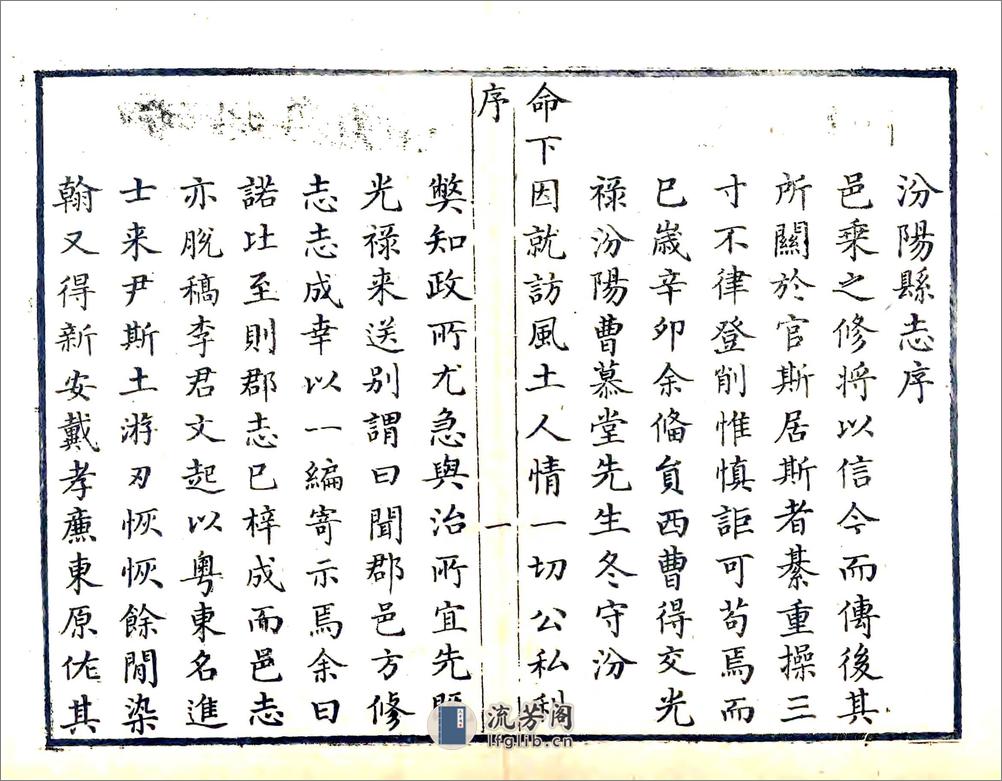 汾陽縣志序
邑乗之修將以信今而傳後其
所關於官斯居斯者綦重操三
寸不律登削惟慎詎可苟焉而
已歲辛卯余俻負西曹得交光
禄汾陽曹慕堂先生冬守汾
命下因就訪風土人情一切公私利
序
一
獘知政所尤急與治所宜先既
光禄来送别謂曰聞郡邑方修
志志成幸以一編寄示焉余曰
諾比至則郡志已梓成而邑志
亦脱稿李君文起以粤東名進
士来尹斯土游刃恢恢餘閒染
翰又得新安戴孝廉東原佐其
流芳阁
lfglib.cn